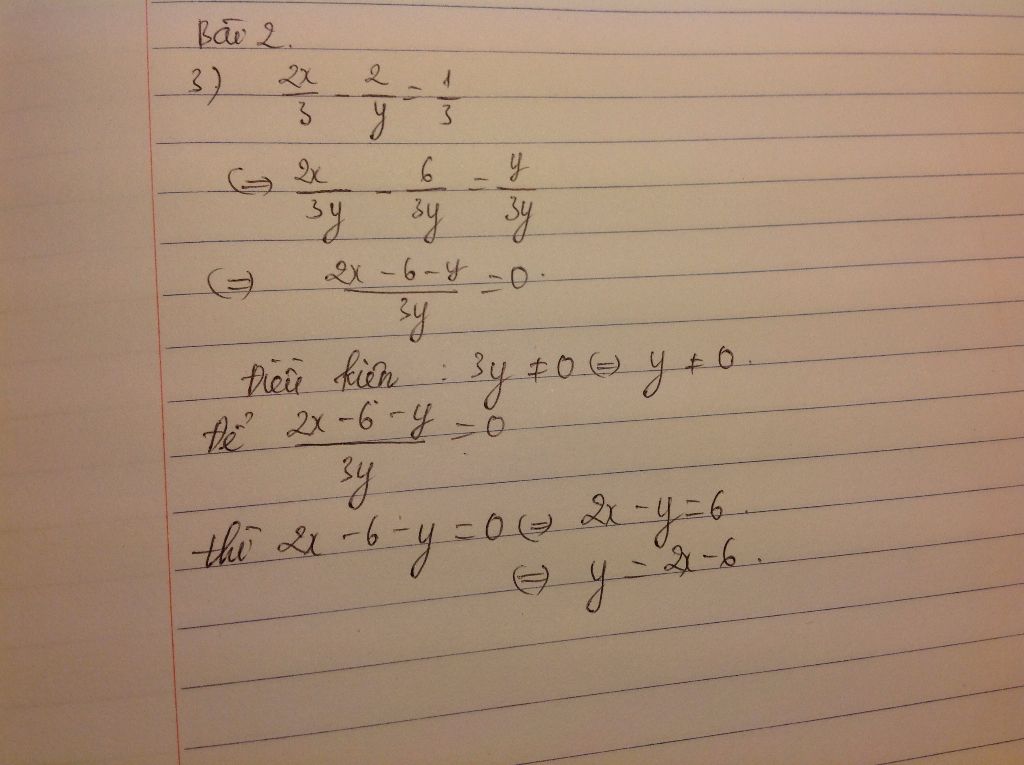 Bài 2.
3) 2x/3 - 2/y = 1/3
(=) 2x/3y - 6/3y = y/3y
(=) 2x - 6 - y/3y = 0.
Điều kiện : 3y ≠ 0 (=) y ≠ 0.
Để 2x - 6 - y/3y = 0
thì 2x - 6 - y = 0 (=) 2x - y = 6.
(=) y = 2x - 6.